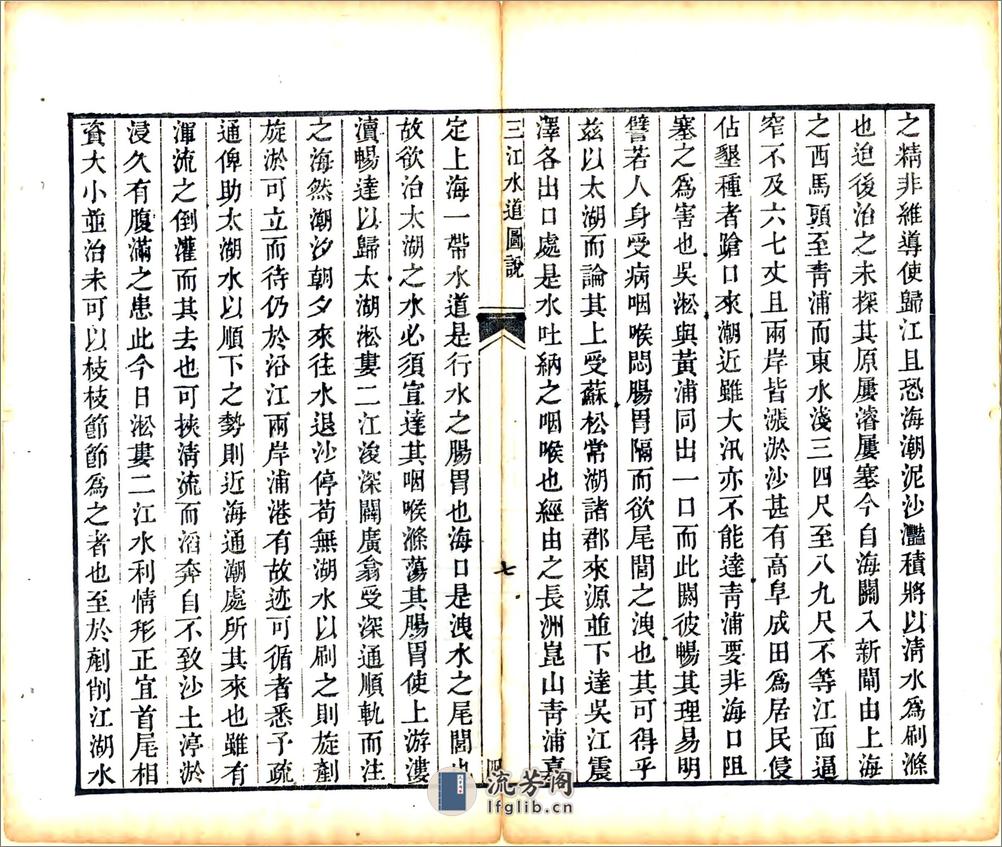 之精非維導使歸江且恐海潮泥沙灩積將以淸水爲刷滌
也迨後治之未探其原屢濬屢塞今自海關入新閘由上海
之西馬頭至靑浦而東水淺三四尺至八九尺不等江面逼
窄不及六七丈且兩岸皆漲淤沙甚有高阜成田爲居民侵
佔墾種者蹌口來潮近雖大汛亦不能達靑浦要非海口阻
塞之爲害也吳淞與黃浦同出一口而此閼彼暢其理易明
譬若人身受病咽喉悶腸胃隔而欲尾閭之洩也其可得乎
茲以太湖而論其上受蘇松常湖諸郡來源並下達吳江震
澤各出口處是水吐納之咽喉也經由之長洲崑山靑浦嘉
三江水道圖說
七
定上海一帶水道是行水之腸胃也海口是洩水之尾閭也
故欲治太湖之水必須宣達其咽喉滌蕩其腸胃使上游漊
瀆暢達以歸太湖淞婁二江浚深闢廣翕受深通順軌而注
之海然潮汐朝夕來往水退沙停苟無湖水以刷之則旋剷
旋淤可立而待仍於沿江兩岸浦港有故迹可循者悉予疏
通俾助太湖水以順下之勢則近海通潮處所其來也雖有
渾流之倒灌而其去也可挾淸流而滔奔自不致沙土停淤
浸久有腹滿之患此今日淞婁二江水利情形正宜首尾相
資大小並治未可以枝枝節節爲之者也至於剷削江湖水
流芳閣
lfglib.cn